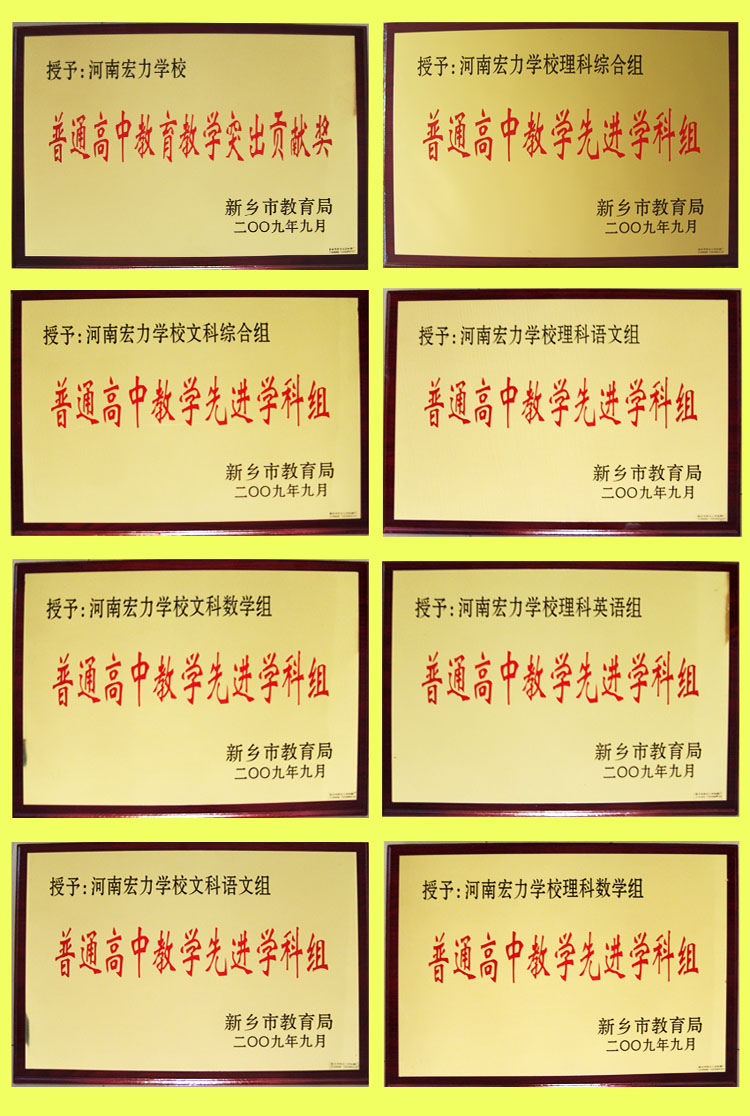 授予:河南宏力学校
普通高中教育教学突出贡献奖
新乡市教育局
二〇〇九年九月
授予:河南宏力学校理科综合组
普通高中教学先进学科组
新乡市教育局
二〇〇九年九月
授予:河南宏力学校文科综合组
普通高中教学先进学科组
新乡市教育局
二〇〇九年九月
授予:河南宏力学校理科语文组
普通高中教学先进学科组
新乡市教育局
二〇〇九年九月
授予:河南宏力学校文科数学组
普通高中教学先进学科组
新乡市教育局
二〇〇九年九月
授予:河南宏力学校理科英语组
普通高中教学先进学科组
新乡市教育局
二〇〇九年九月
授予:河南宏力学校文科语文组
普通高中教学先进学科组
新乡市教育局
二〇〇九年九月
授予:河南宏力学校理科数学组
普通高中教学先进学科组
新乡市教育局
二〇〇九年九月